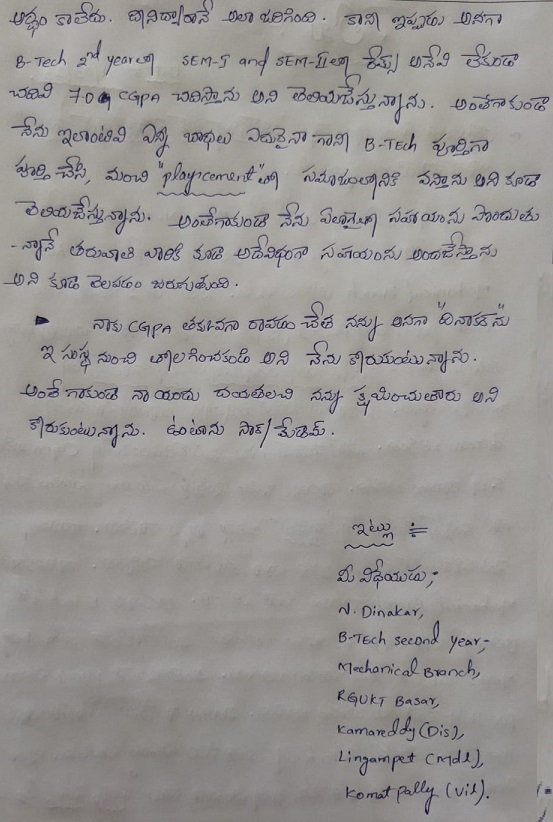 అర్థం కాలేదు. దానిద్వారానే అలా జరిగింది. కాని ఇప్పుడు అనగా
B-Tech 2nd year లో SEM-I and SEM-II లో రేమ్స్ అనేవి లేకుండా
చదివి 7.0 CGPA చదిస్తాను అని తెలియచేస్తున్నాను. అంతేగాకుండా
నేను ఇలాంటివి ఎన్ని బాధలు ఎదురైనా గాని B-TEch పూర్తిగా
పూర్తి చేసి, మంచి "playcement" తో సమాజంలోనికి వస్తాను అని కూడా
తెలియచేస్తున్నాను. అంతేగాకుండా నేను ఏలాగైతే సహాయంను పొందుతు
-న్నానే తరువాతి వారికి కూడా అదేవిధంగా సహాయంను అందజేస్తాను
అని కూడ తెలపడం జరుగుతుంది.
నాకు CGPA తక్కువగా రావడం చేత నన్ను అనగా "దినాకర్‌ను"
ఇ సంస్థ నుంచి తొలగించకండి అని నేను కోరుకుంటున్నాను.
అంతేగాకుండా నా యందు దయతలచి నన్ను క్షమించుతారు అని
కోరుకుంటున్నాను. ఉంటాను సార్/మేడమ్.
ఇట్లు
మీ విధేయుడు,
N. Dinakar,
B-TEch second year,
Mechanical Branch,
RGUKT Basar,
Kamareddy (Dis),
Lingampet (mdl),
Komatpally (vil).